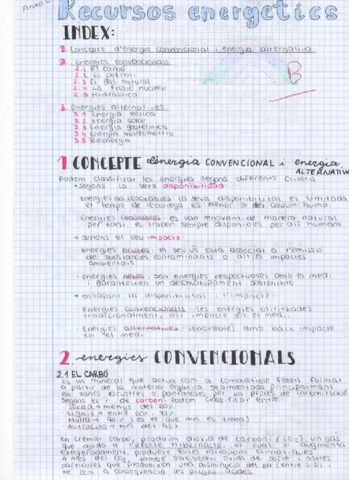 Recursos energètics
INDEX:
1. Concepte d'energia convencional i energia alternativa
2. Energies convencionals
2.1 El carbó
2.2 El petroli
2.3 El gas natural
2.4 La fissió nuclear
2.5 Hidràulica
B
3. Energies alternatives
3.1 Energia eòlica
3.2 Energia solar
3.3 Energia geotèrmica
3.4 Energia mareomotriu
3.5 Bioenergia
1 CONCEPTE d'energia CONVENCIONAL i energia
ALTERNATIVA
Podem classificar les energies segons diferents criteris
→ segons la seva disponibilitat
Energies no renovables la seva disponibilitat és limitada
el temps de recàrrega és menor a del consum humà
Energies renovables es van renovant de manera natural
per tant, es troben sempre disponibles per als humans
→ segons el seu impacte
Energies brutes el seu ús està associat a l'emissió
de substàncies contaminants o altres impactes
ambientals
Energies netes son energies respectuoses amb el medi
i garanteixen un desenvolupament sostenible
→ la disponibilitat i l'impacte
Energies convencionals les energies utilitzades
tradicionalment, així en el medi
Energies alternatives renovables amb baix impacte
en el medi
2 energies CONVENCIONALS
2.1 EL CARBÓ
És un mineral que actua com a combustible fòssil format
a partir de la matèria orgànica sedimentada principalment
en zones lacustres o pantanoses per un procés de carbonització
Segons el % de carboni podem classificar entre
Torba → menys del 60%
Lignit → entre 60% i 75%
Hulla → (és el que més es troba)
Antracita → més del 95%
En cremar carbó, produïm diòxid de carboni (CO2), un gas
que ajuda a l'efecte hivernacle, el qual, si augmenta
exageradament, produeix fortes variacions climàtiques
A més del CO2, també s'alliberen òxids de sofre i altres
partícules que produeixen una disminució del pH (entre 3-5) i
té com a conseqüència les pluges àcides